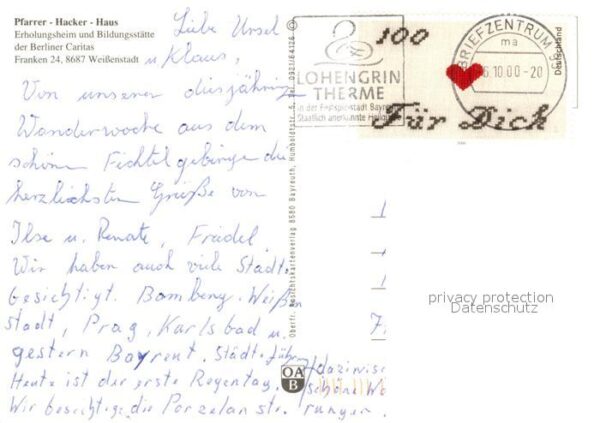 Pfarrer - Hacker - Haus
Erholungsheim und Bildungsstätte
der Berliner Caritas
Franken 24, 8687 Weißenstadt
Liebe Ursel
u Klaus,
Von unserer diesjährigen
Wanderwoche aus dem
schönen Fichtelgebirge die
herzlichsten Grüße von
Ilse u. Renate, Friedel
Wir haben auch viele Städte
besichtigt. Bamberg, Weißen
stadt, Prag, Karlsbad u.
gestern Bayreut. Städteführ
Heute ist der erste Regentag.
Wir besichtige die Porzelan
rungen.
dazwisc
schöne Wa
Oberfr. Ansichtskartenverlag 8580 Bayreuth, Humboldtstr.
OA
B
LOHENGRIN
THERME
in der Festspielstadt Bayreuth
Staatlich anerkannte Heilquelle
BRIEFZENTRUM 95
ma
6.10.00-20
100
Für Dich
Deutschland
privacy protection
Datenschutz